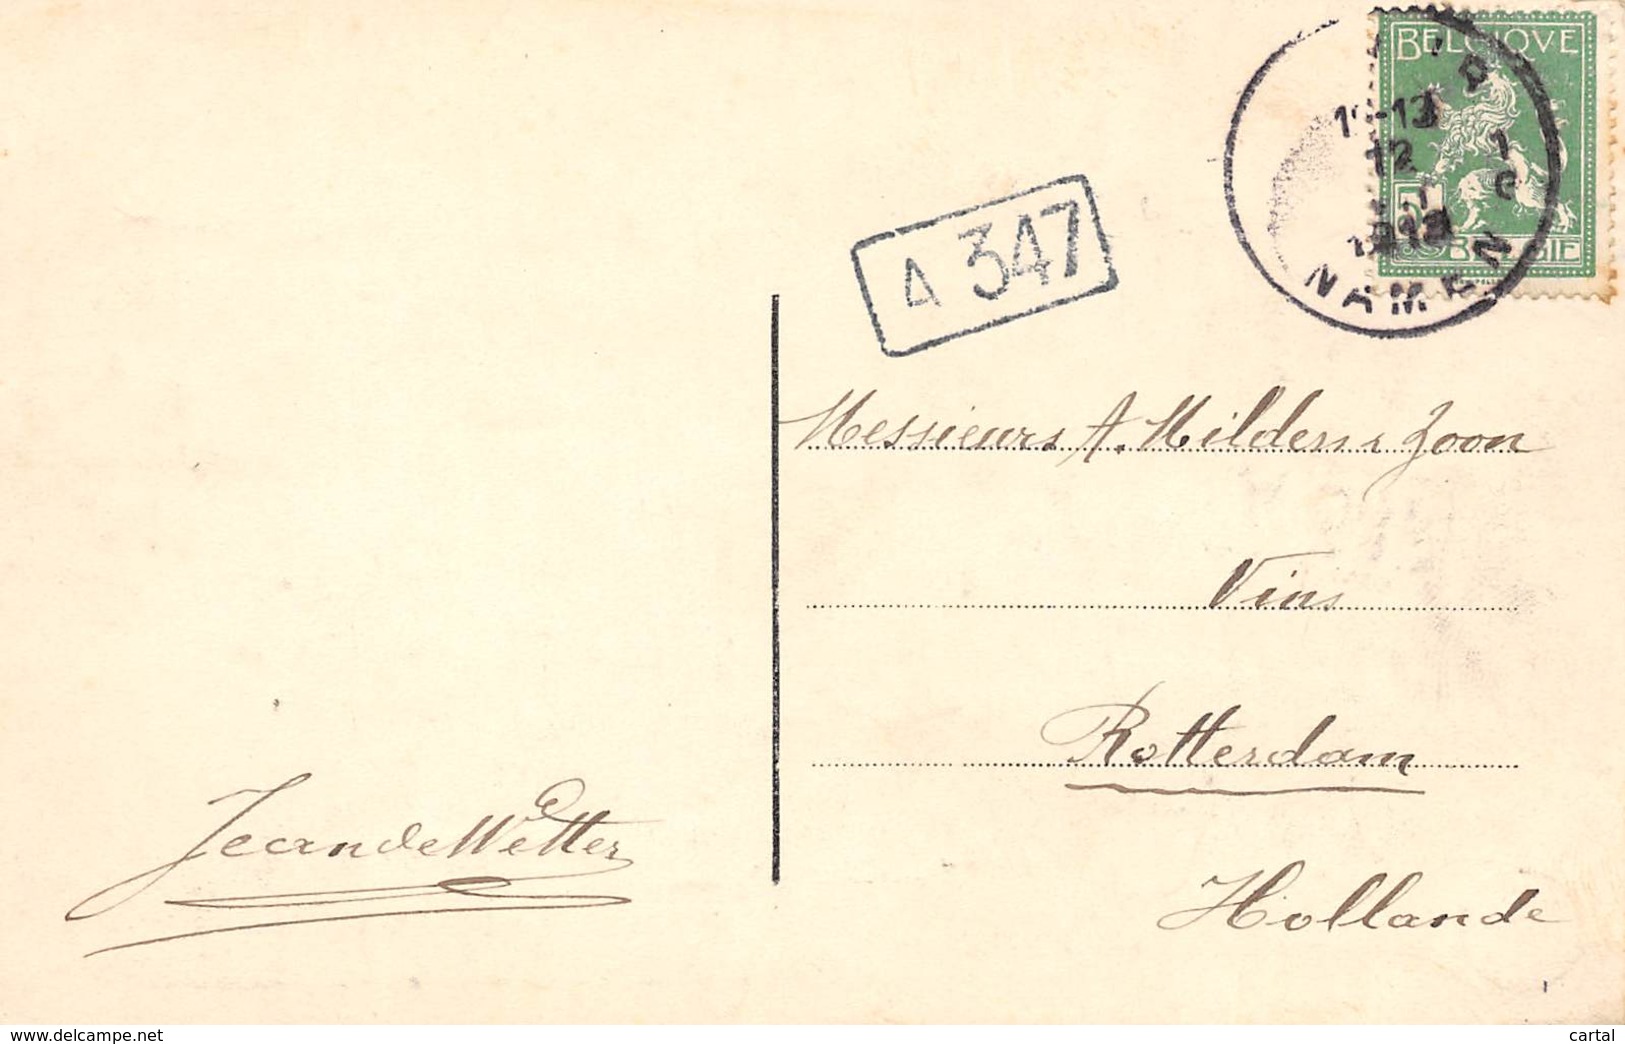 BELGIQVE
5
BELGIË
12-13
12
1912
1 C
NAMEN
A 347
Messieurs A. Milders & Zoon
Vins
Rotterdam
Hollande
Jean de Wetter
delcampe.net
cartal